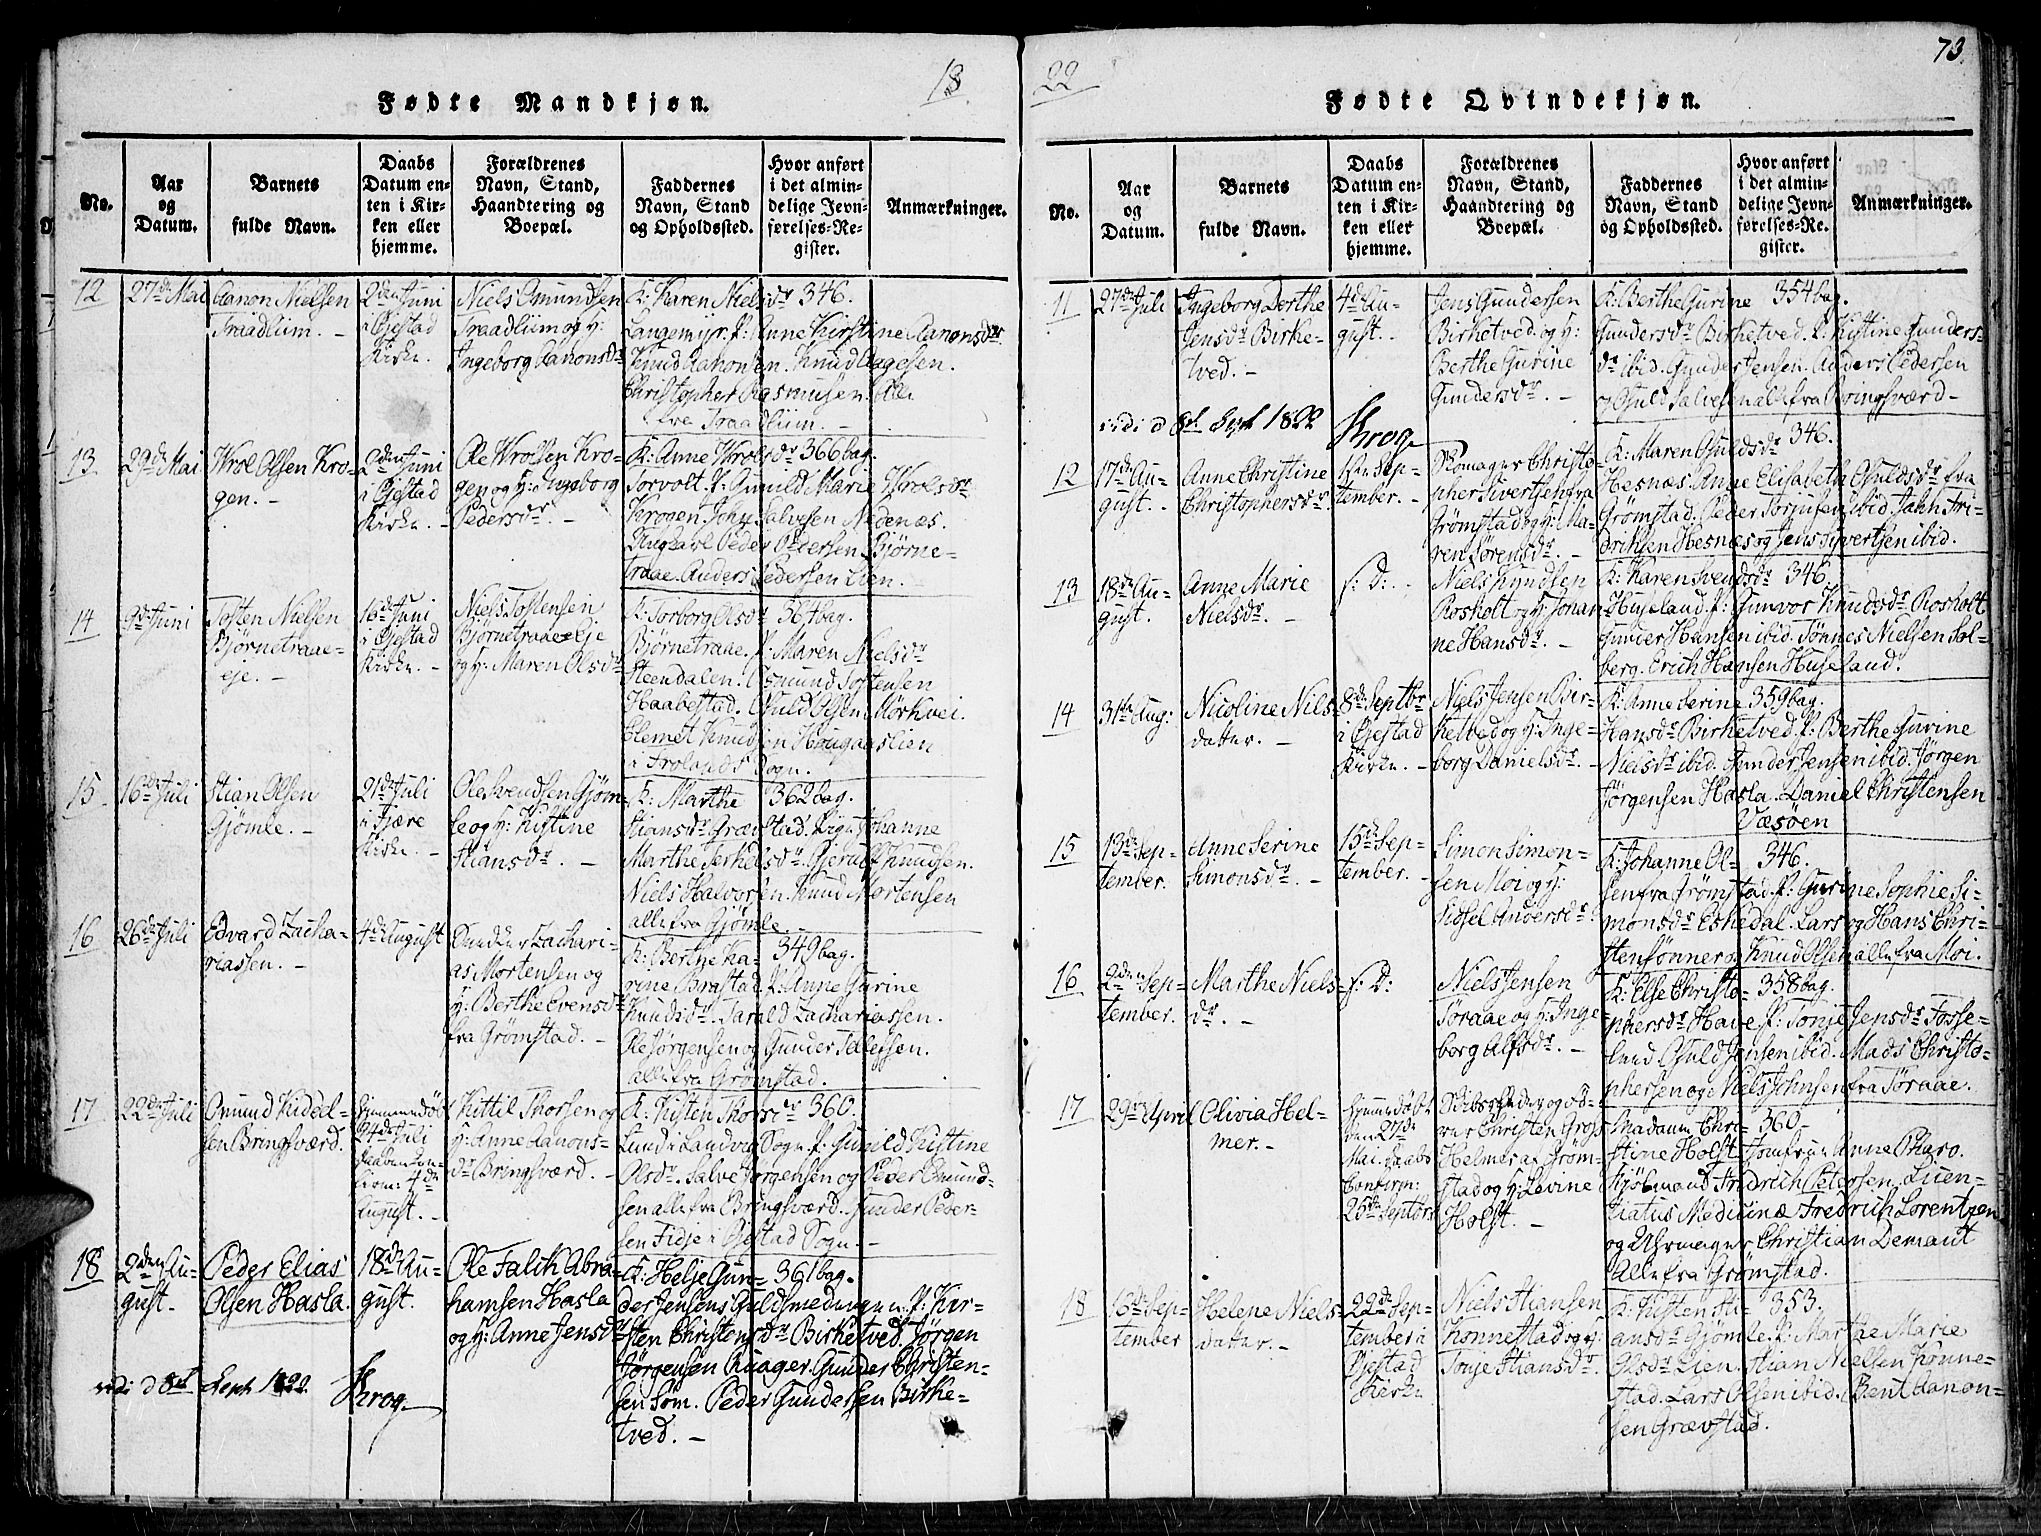 18
Fødte Mandkjøn.
No.
Aar
og
Datum.
Barnets
fulde Navn.
Daabs
Datum en-
ten i Kir-
ken eller
hjemme.
Forældrenes
Navn, Stand,
Haandtering og
Boepæl.
Faddernes
Navn, Stand
og Opholdssted.
Hvor anført
i det almin-
delige Jevn-
førelses-Re-
gister.
Anmærkninger.
12
27de Mai
Aanon Nielsen
Traadlium. -
2den Juni
i Øjestad
Kirke.
Niels Omundsen
Traadlium og H:
Ingeborg Aanonsdr
K: Karen Nielsdr 346.
Langemÿr. P: Anne Kirstine Aanonsdr
Knud Aanonsen. Knud Aagesen.
Christopher Rasmusen. Alle
fra Traadlium. -
13.
29de Mai
Wrol Olsen Kro-
gen. -
2den Juni
i Øjestad
Kirke. -
Ole Wrolsen Kro-
gen og H: Ingeborg
Pedersdr. -
K: Anne Wrolsdr 366 bag.
Torvolt. P: Gunild Marie Wrolsdr
Krogen. John Salvesen Nedenæs.
Ungkarl Peder Pedersen Bjørne-
traae. Anders Pedersen Lien.
14
9de Juni
Tosten Nielsen
Bjørnetraae-
eje. -
16de Juni
i Øjestad
Kirke. -
Niels Tostensen
Bjørnetraae-Eje
og H: Maren Olsdr
K: Torborg Olsdr 364 bag.
Bjørnetraae. P: Maren Nielsdr
Steendalen. Osmund Tostensen
Haabestad. Osuld Olsen Mørkvei.
Clemet Knudsen Hougaaslien
i Frolands Sogn.
15
16de Juli
Stian Olsen
Gjømle. -
21de Juli
i Fjære
Kirke. -
Ole Svendsen Gjøm-
le og H: Kistine
Stiansdr. -
K: Marthe 362 bag.
Stiansdr Grævstad. Pige Johanne
Marthe Terkelsdr. Gjerulf Knudsen.
Niels Halvorsen. Knud Mortensen
alle fra Gjømle.
16
26de Juli
Edvard Zacha-
riassen. -
4de August
Zachari-
as Mortensen og
H: Berthe Evensdr
fra Grømstad. -
K: Berthe Ka- 349 bag.
rine Brastad. P: Anne Gurine
Knudsdr. Tarald Zachariassen.
Ole Jørgensen og Gunder Tellefsen.
Alle fra Grømstad.
17
22de Juli
Omund Kiddel-
sen Bringsværd.
Hjemmedøbt
24de Juli
4de
August. -
Kittil Thorsen og
H: Anne Aanons-
dr Bringsværd. -
K: Kisten Thorsdr 360.
Lund i Landvig Sogn. P: Gunild Kistine
Olsdr. Salve Jørgensen og Peder Omund-
sen alle fra Bringsværd. Gunder Peder-
sen Fidje i Øjestad Sogn. -
18
2den Au-
gust. -
Peder Elias
Olsen Hasla.
18de Au-
gust.
Ole Falik Abra-
hamsen Hasla
og H: Anne Jensdr
K: Helje Gun- 361 bag.
der Jensens Guldsmed P: Kir-
sten Christensdr Birketved. Jørgen
Jørgensen Qvager. Gunder Christen-
sen Søm. Peder Gundersen Birke-
tved. -
vidi d 8de Sept 1822.
Krog
22
73.
Fødte Qvindekjøn.
No.
Aar
og
Datum.
Barnets
fulde Navn.
Daabs
Datum en-
ten i Kir-
ken eller
hjemme.
Forældrenes
Navn, Stand,
Haandtering og
Boepæl.
Faddernes
Navn, Stand
og Opholdssted.
Hvor anført
i det almin-
delige Jevn-
førelses-Re-
gister.
Anmærkninger.
11
27de Juli
Ingeborg Berthe
Jensdr Birke-
tved. -
4de Au-
gust. -
Jens Gundersen
Birketved. og H:
Berthe Gurine
Gundersdr. -
K: Berthe Gurine 354 bag.
Gundersdr Birketved. P: Kistine Gunders-
dr ibid. Gunder Jensen. Anders Pedersen
og Osuld Salvesen alle fra Bringsværd -
vidi d 8de Sept 1822
Krog
12
17de Au-
gust. -
Anne Christine
Christophersdr.
1ste Sep-
tember. -
Skomager Christo-
pher Sivertsen fra
Grømstad og H: Ma-
ren Sørensdr. -
K: Maren Osuldsdr 346.
Hesnæs. Anne Elisabeth Osuldsdr fra
Grømstad. Peder Torjusen ibid. Jahn Fri-
driksen Hesnæs og Jens Syvertsen ibid.
13
18de Au-
gust.
Anne Marie
Nielsdr. -
s: D: -
Niels Knudsen
Rosholt og H: Johan-
ne Hansdr. -
K: Karen Svendsdr 346.
Huseland. P: Gunvor Knudsdr Rosholt
Gunder Hansen ibid. Tønnes Nielsen Sol-
berg. Erich Hansen Huseland.
14
31te Aug:
Nicoline Niels-
datter. -
8de Septbr
i Øjestad
Kirke. -
Niels Jensen Bir-
ketved og H: Inge-
borg Danielsdr. -
K: Anne Serine 359 bag.
Hansdr Birketved. P: Berthe Gurine
Nielsdr ibid. Gunder Jensen ibid. Jørgen
Jørgensen Hasla. Daniel Christensen
Væsøen
15
13de Sep-
tember.
Anne Serine
Simonsdr. -
15de Sep-
tember. -
Simon Simon-
sen Moi og H:
Sidsel Andersdr
K: Johanne Ol- 346.
sen fra Grømstad. P: Gurine Sophie Si-
monsdr Eskedal. Lars og Hans Chri-
stensønner og Knud Olsen alle fra Moi.
16
2den Sep-
tember.
Marthe Niels-
dr. -
s: D:
Niels Jensen
Tøraae og H: Inge-
borg Alfsdr. -
K: Else Christo- 358 bag.
phersdr Have. P: Tonje Jensdr Fosse-
lund. Osuld Jensen ibid. Mads Christo-
phersen og Niels Johnsen fra Tøraae.
17
29de April
Olivia Hel-
mer. -
Hjemmedøbt
den 27de
Mai. Daabs
Confirm:
25de Septbr
Skibsreder og
Christen Gross
Helmer af Grøm-
stad og H: Lovine
Holst. -
Madame Chri- 360.
stine Holst. Jomfrue Anne Pharo.
Kjøbmand Fridrich Petersen. Licen-
tiatus Medicinæ Fredrich Lorentzen
og Uhrmager Christian Demant
Alle fra Grømstad.
18
16de Sep-
tember
Helene Niels-
datter. -
22de Sep-
tember i
Øjestad
Kirke
Niels Stiansen
Tønnestad og H:
Tonje Stiansdr.
K: Kisten Sti- 353.
ansdr Gjømle. P: Marthe Marie
Olsdr Lien. Stian Nielsen Tønne-
stad. Lars Olsen ibid. Bent Aanon-
sen Grævstad.